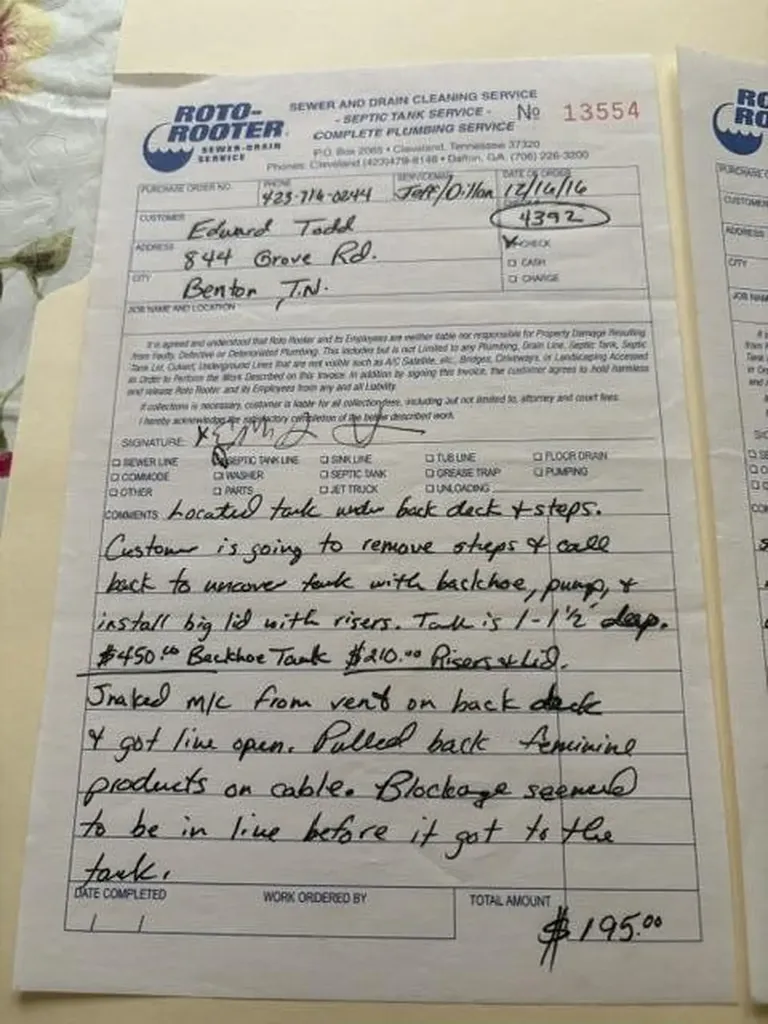 ROTO-ROOTER
SEWER-DRAIN SERVICE
SEWER AND DRAIN CLEANING SERVICE
- SEPTIC TANK SERVICE -
COMPLETE PLUMBING SERVICE
No 13554
P.O. Box 2065 • Cleveland, Tennessee 37320
Phones: Cleveland (423)479-8148 • Dalton, GA. (706) 226-3200
PURCHASE ORDER NO. PHONE 423-716-0244 SERVICEMAN Jeff/Dillon DATE OF ORDER 12/16/16
CUSTOMER Edward Todd
4392
ADDRESS 844 Grove Rd.
CHECK
CASH
CITY Benton T.N.
CHARGE
JOB NAME AND LOCATION
It is agreed and understood that Roto Rooter and its Employees are neither liable nor responsible for Property Damage Resulting
from Faulty, Defective or Deteriorated Plumbing. This includes but is not Limited to any Plumbing, Drain Line, Septic Tank, Septic
Tank Lid, Culvert, Underground Lines that are not visible such as A/C Satellite, etc., Bridges, Driveways, or Landscaping Accessed
in Order to Perform the Work Described on this Invoice. In addition by signing this Invoice, the customer agrees to hold harmless
and release Roto Rooter and its Employees from any and all Liability.
If collections is necessary, customer is liable for all collection fees, including but not limited to, attorney and court fees.
I hereby acknowledge the satisfactory completion of the below described work.
SIGNATURE: X
SEWER LINE SEPTIC TANK LINE SINK LINE TUB LINE FLOOR DRAIN
COMMODE WASHER SEPTIC TANK GREASE TRAP PUMPING
OTHER PARTS JET TRUCK UNLOADING
COMMENTS Located tank under back deck & steps.
Customer is going to remove steps & call
back to uncover tank with backhoe, pump, &
install big lid with risers. Tank is 1-1½' deep.
$450.00 Backhoe Tank $210.00 Risers & Lid.
Snaked m/c from vent on back deck
& got line open. Pulled back feminine
products on cable. Blockage seemed
to be in line before it got to the
tank.
DATE COMPLETED WORK ORDERED BY TOTAL AMOUNT
/ / $195.00